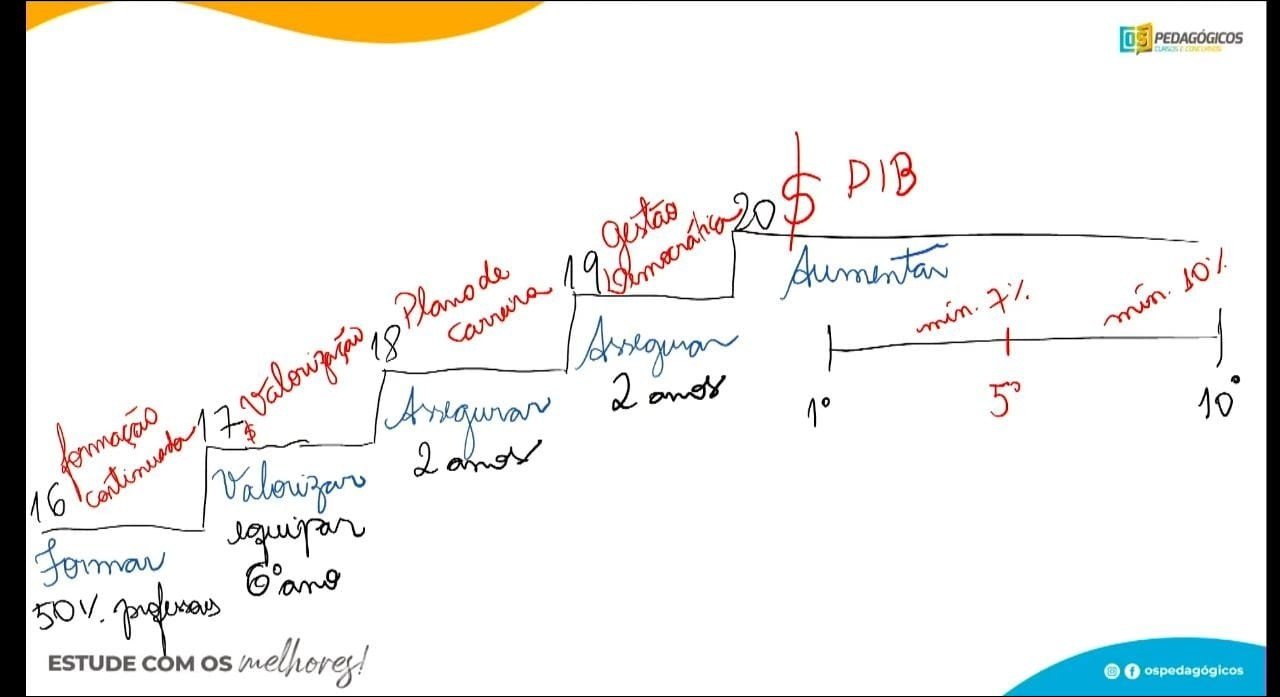 OS PEDAGÓGICOS
CURSOS E CONCURSOS
16 formação
continuada
Formar
50% professores
17 Valorização
$
Valorizar
equipar
6º ano
18 Plano de
carreira
Assegurar
2 anos
19 gestão
Democrática
Assegurar
2 anos
20 $ PIB
Aumentar
mín. 7% mín. 10%
1º 5º 10º
ESTUDE COM OS melhores!
ospedagógicos